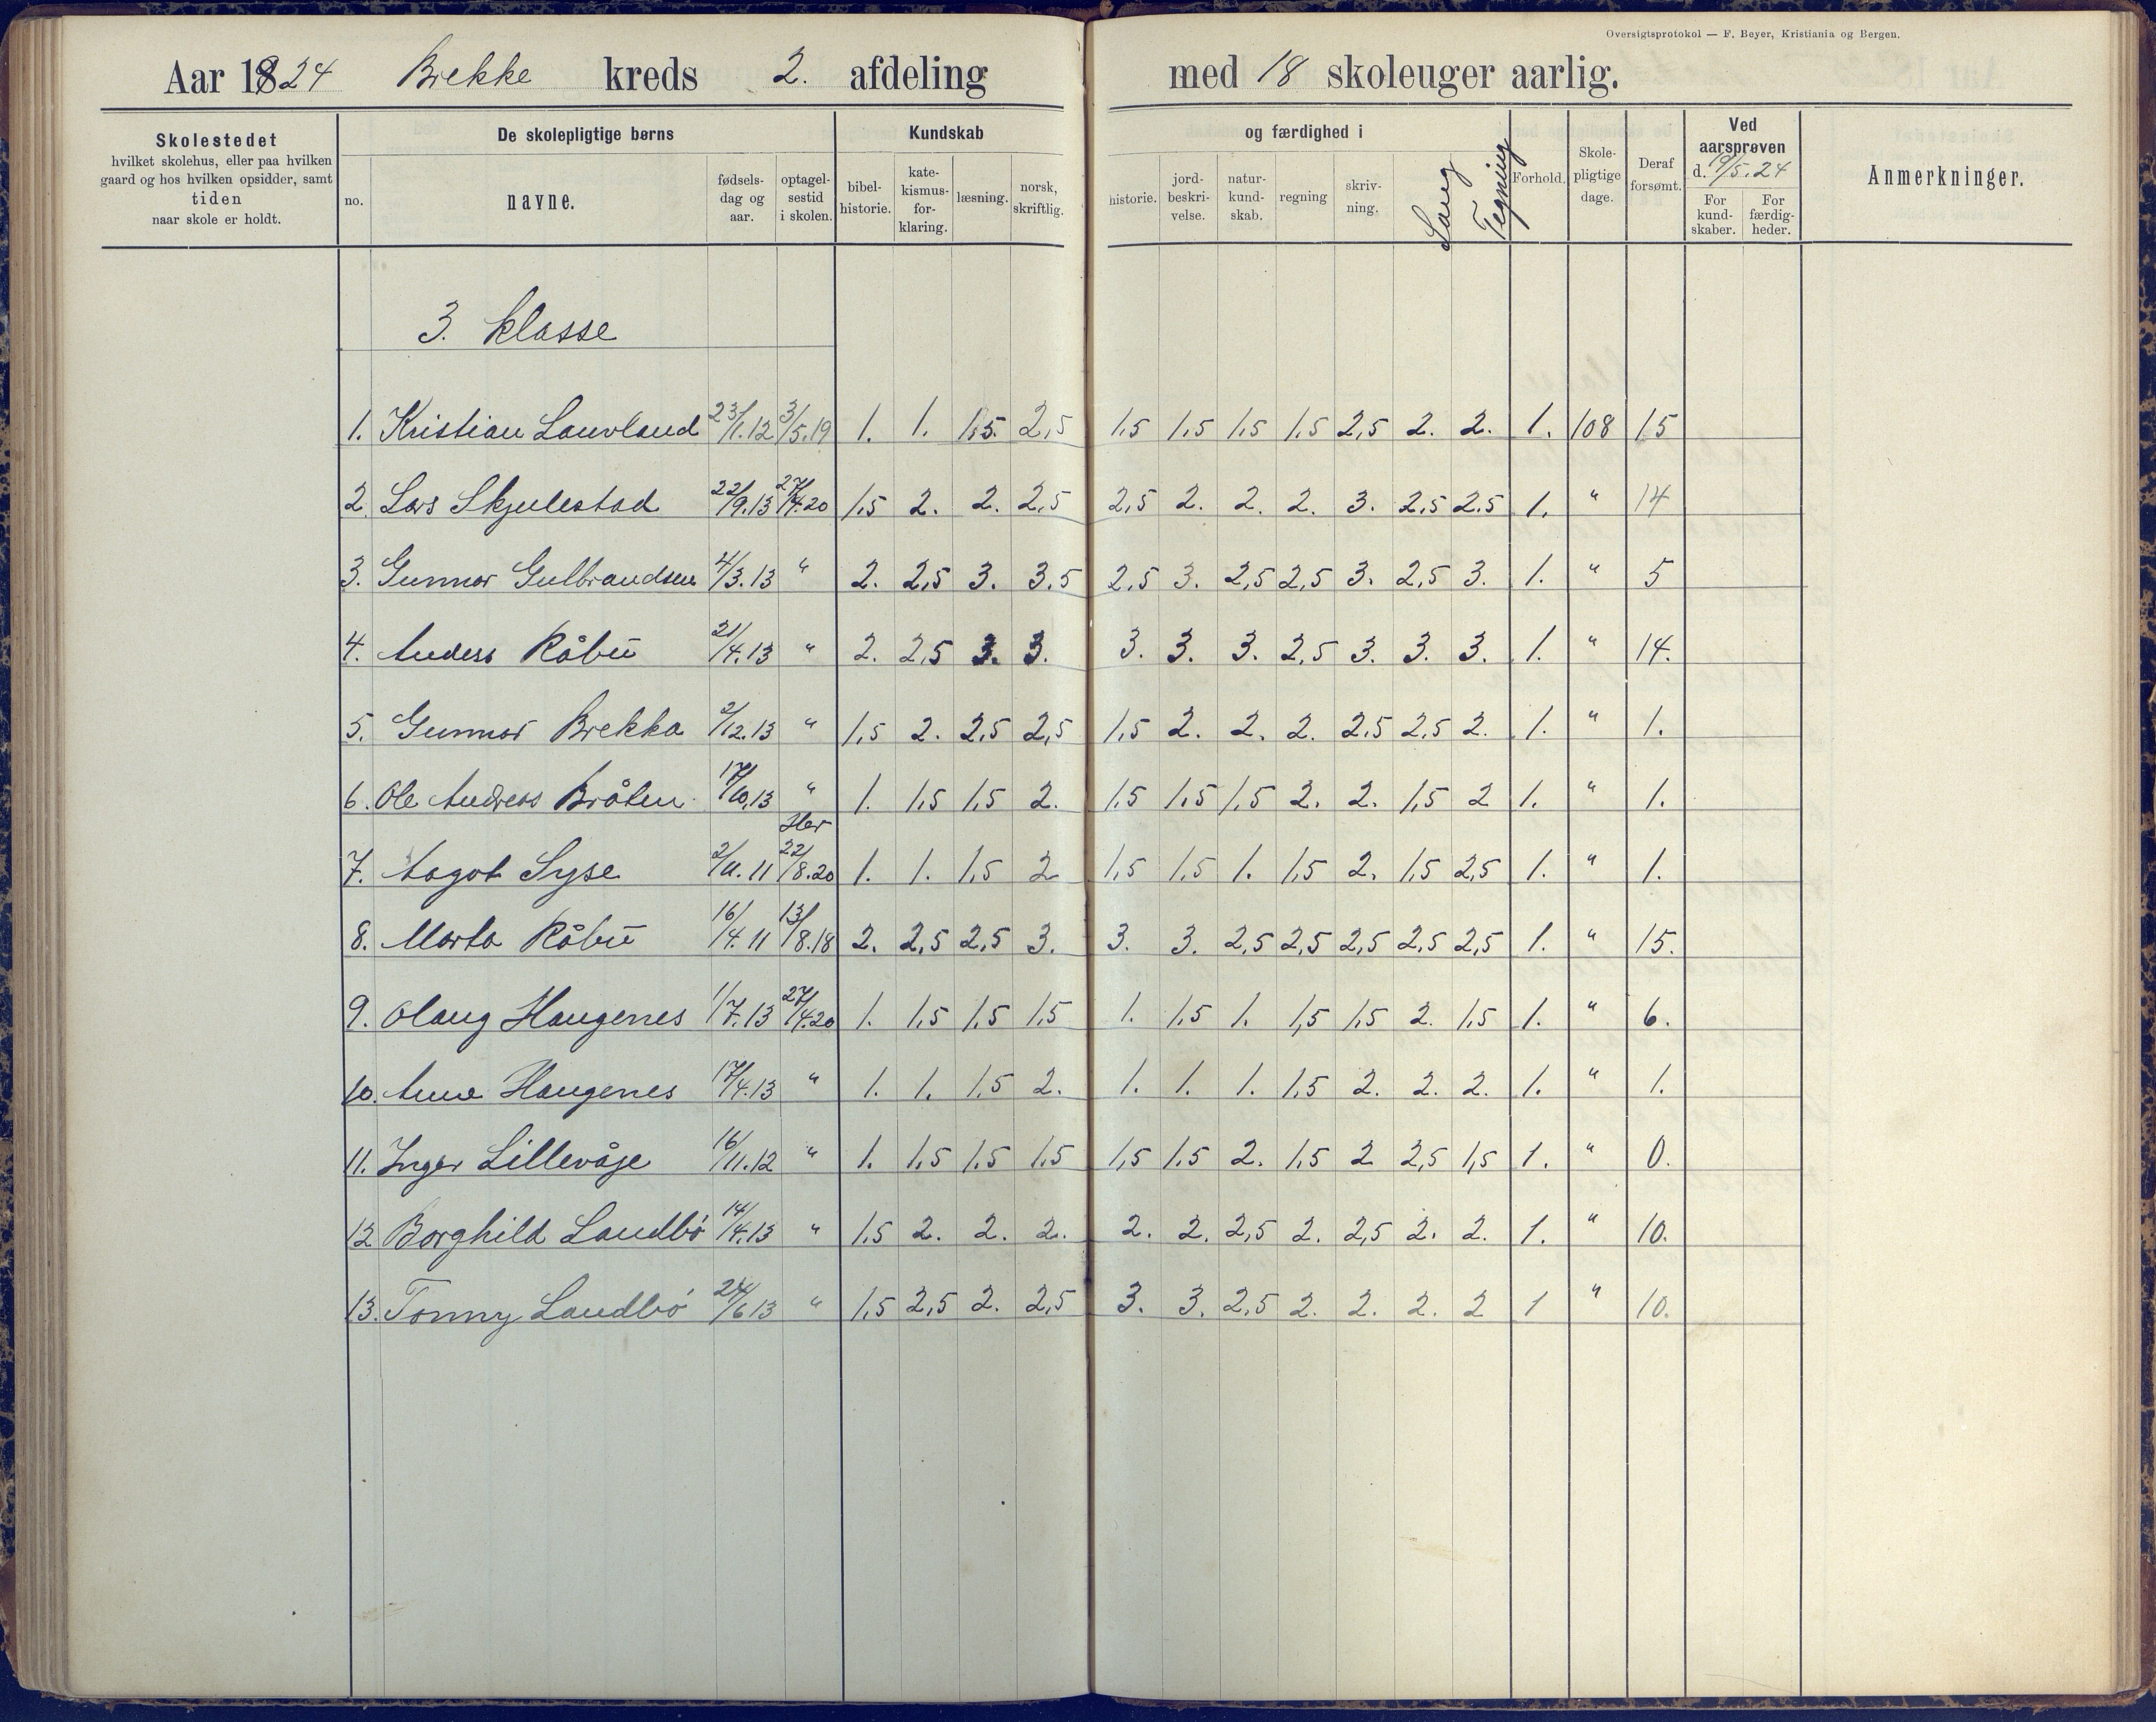 Oversigtsprotokol — F. Beyer, Kristiania og Bergen.
Aar 1924 Brekke kreds 2. afdeling med 18 skoleuger aarlig.
Skolestedet hvilket skolehus, eller paa hvilken gaard og hos hvilken opsidder, samt tiden naar skole er holdt.
De skolepligtige børns
no. navne. fødsels-dag og aar. optagel-sestid i skolen.
Kundskab og færdighed i
bibel-historie. kate-kismus-for-klaring. læsning. norsk, skriftlig. historie. jord-beskri-velse. natur-kund-skab. regning skriv-ning. Sang Tegning
Forhold. Skole-pligtige dage. Deraf forsømt.
Ved aarsprøven d. 19/5.24
For kund-skaber. For færdig-heder.
Anmerkninger.
3. klasse
1. Kristian Lauvland 23/1.12 3/5.19 1. 1. 1.5. 2,5 1,5 1,5 1,5 1,5 2,5 2. 2. 1. 108 15
2. Lars Skjulestad 22/9.13 27/4.20 1,5 2. 2. 2,5 2,5 2. 2. 2. 3. 2,5 2.5 1. " 14
3. Gunnar Gulbrandsen 4/3.13 " 2. 2,5 3. 3.5 2,5 3. 2,5 2,5 3. 2,5 3. 1. " 5
4. Anders Råbu 21/4.13 " 2. 2,5 3. 3. 3. 3. 3. 2,5 3. 3. 3. 1. " 14.
5. Gunnar Brekka 2/12.13 " 1,5 2. 2,5 2,5 1,5 2. 2. 2. 2,5 2,5 2. 1. " 1.
6. Ole Andreas Bråten 17/10,13 " 1. 1,5 1,5 2. 1,5 1,5 1,5 2. 2. 1,5 2 1. " 1.
Her
7. Aagot Syse 2/11.11 22/8.20 1. 1. 1,5 2 1,5 1,5 1. 1,5 2. 1,5 2,5 1. " 1.
8. Marta Råbu 16/4.11 13/8.18 2. 2,5 2,5 3. 3. 3. 2,5 2,5 2,5 2,5 2,5 1. " 15.
9. Olaug Haugenes 11/7.13 27/4.20 1. 1,5 1,5 1,5 1. 1,5 1. 1,5 1,5 2. 1,5 1. " 6.
10. Anna Haugenes 17/4.13 " 1. 1. 1,5 2. 1. 1. 1. 1,5 2. 2. 2. 1. " 1.
11. Inger Lillevåje 16/11.12 " 1. 1,5 1,5 1,5 1,5 1,5 2. 1,5 2 2,5 1,5 1. " 0.
12 Borghild Landbö 14/4.13 " 1,5 2. 2. 2. 2. 2. 2,5 2. 2,5 2. 2. 1. " 10.
13. Tonny Landbö 24/6 13 " 1,5 2,5 2. 2,5 3. 3. 2,5 2. 2. 2. 2 1 " 10.